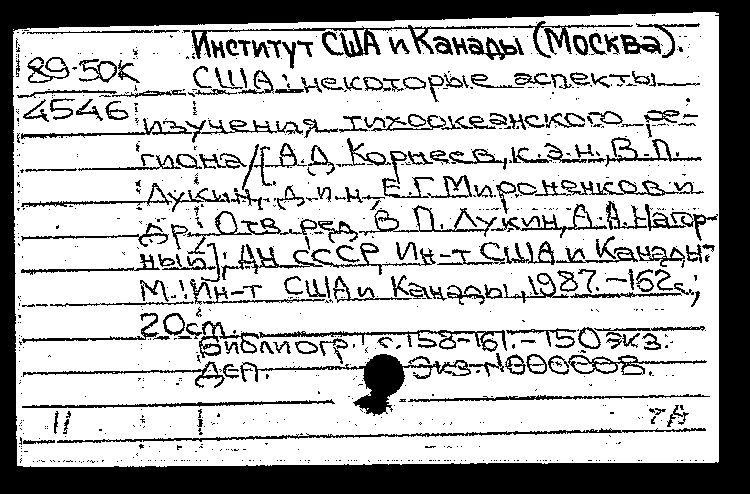 Институт США и Канады (Москва).
89-50К США: некоторые аспекты
4546 изучения тихоокеанского ре-
гиона/[А.Д. Корнеев, к.э.н., В.П.
Лукин, д.и.н., Е.Г. Мироненков и
др.; Отв. ред. В.П. Лукин, А.А. Нагор-
ный]; АН СССР, Ин-т США и Канады.-
М.: Ин-т США и Канады, 1987.-162с.;
20см.
Библиогр.: с.158-161.-150экз.
ДСП. Экз.N000008.
11 7А